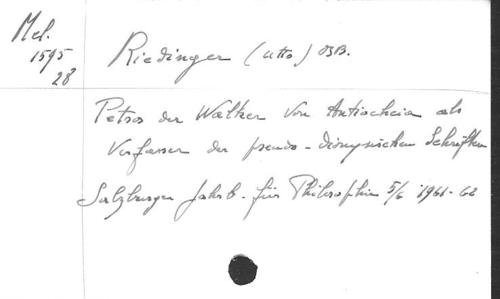 Mel.
1595
28
Riedinger (Utto) OSB.
Petros der Walker von Antiocheia als
Verfasser der pseudo-dionysischen Schriften
Salzburger Jahrb. für Philosophie 5/6 1961-62